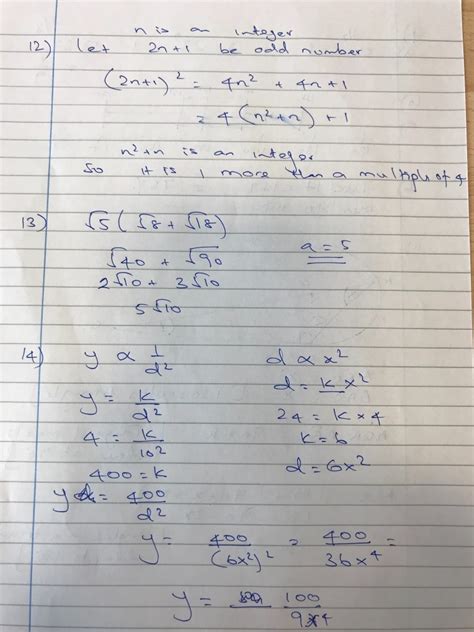 n is an integer
12) Let 2n+1 be odd number
(2n+1)² = 4n² + 4n + 1
= 4(n²+n) + 1
n²+n is an integer
So it is 1 more than a multiple of 4
13) √5 (√8 + √18)
√40 + √90 a = 5
2√10 + 3√10
5√10
14) y ∝ 1/d² d ∝ x²
y = k/d² d = kx²
4 = k/10² 24 = k × 4
400 = k k = 6
y = 400/d² d = 6x²
y = 400/(6x²)² = 400/36x⁴ =
y = 100/9x⁴